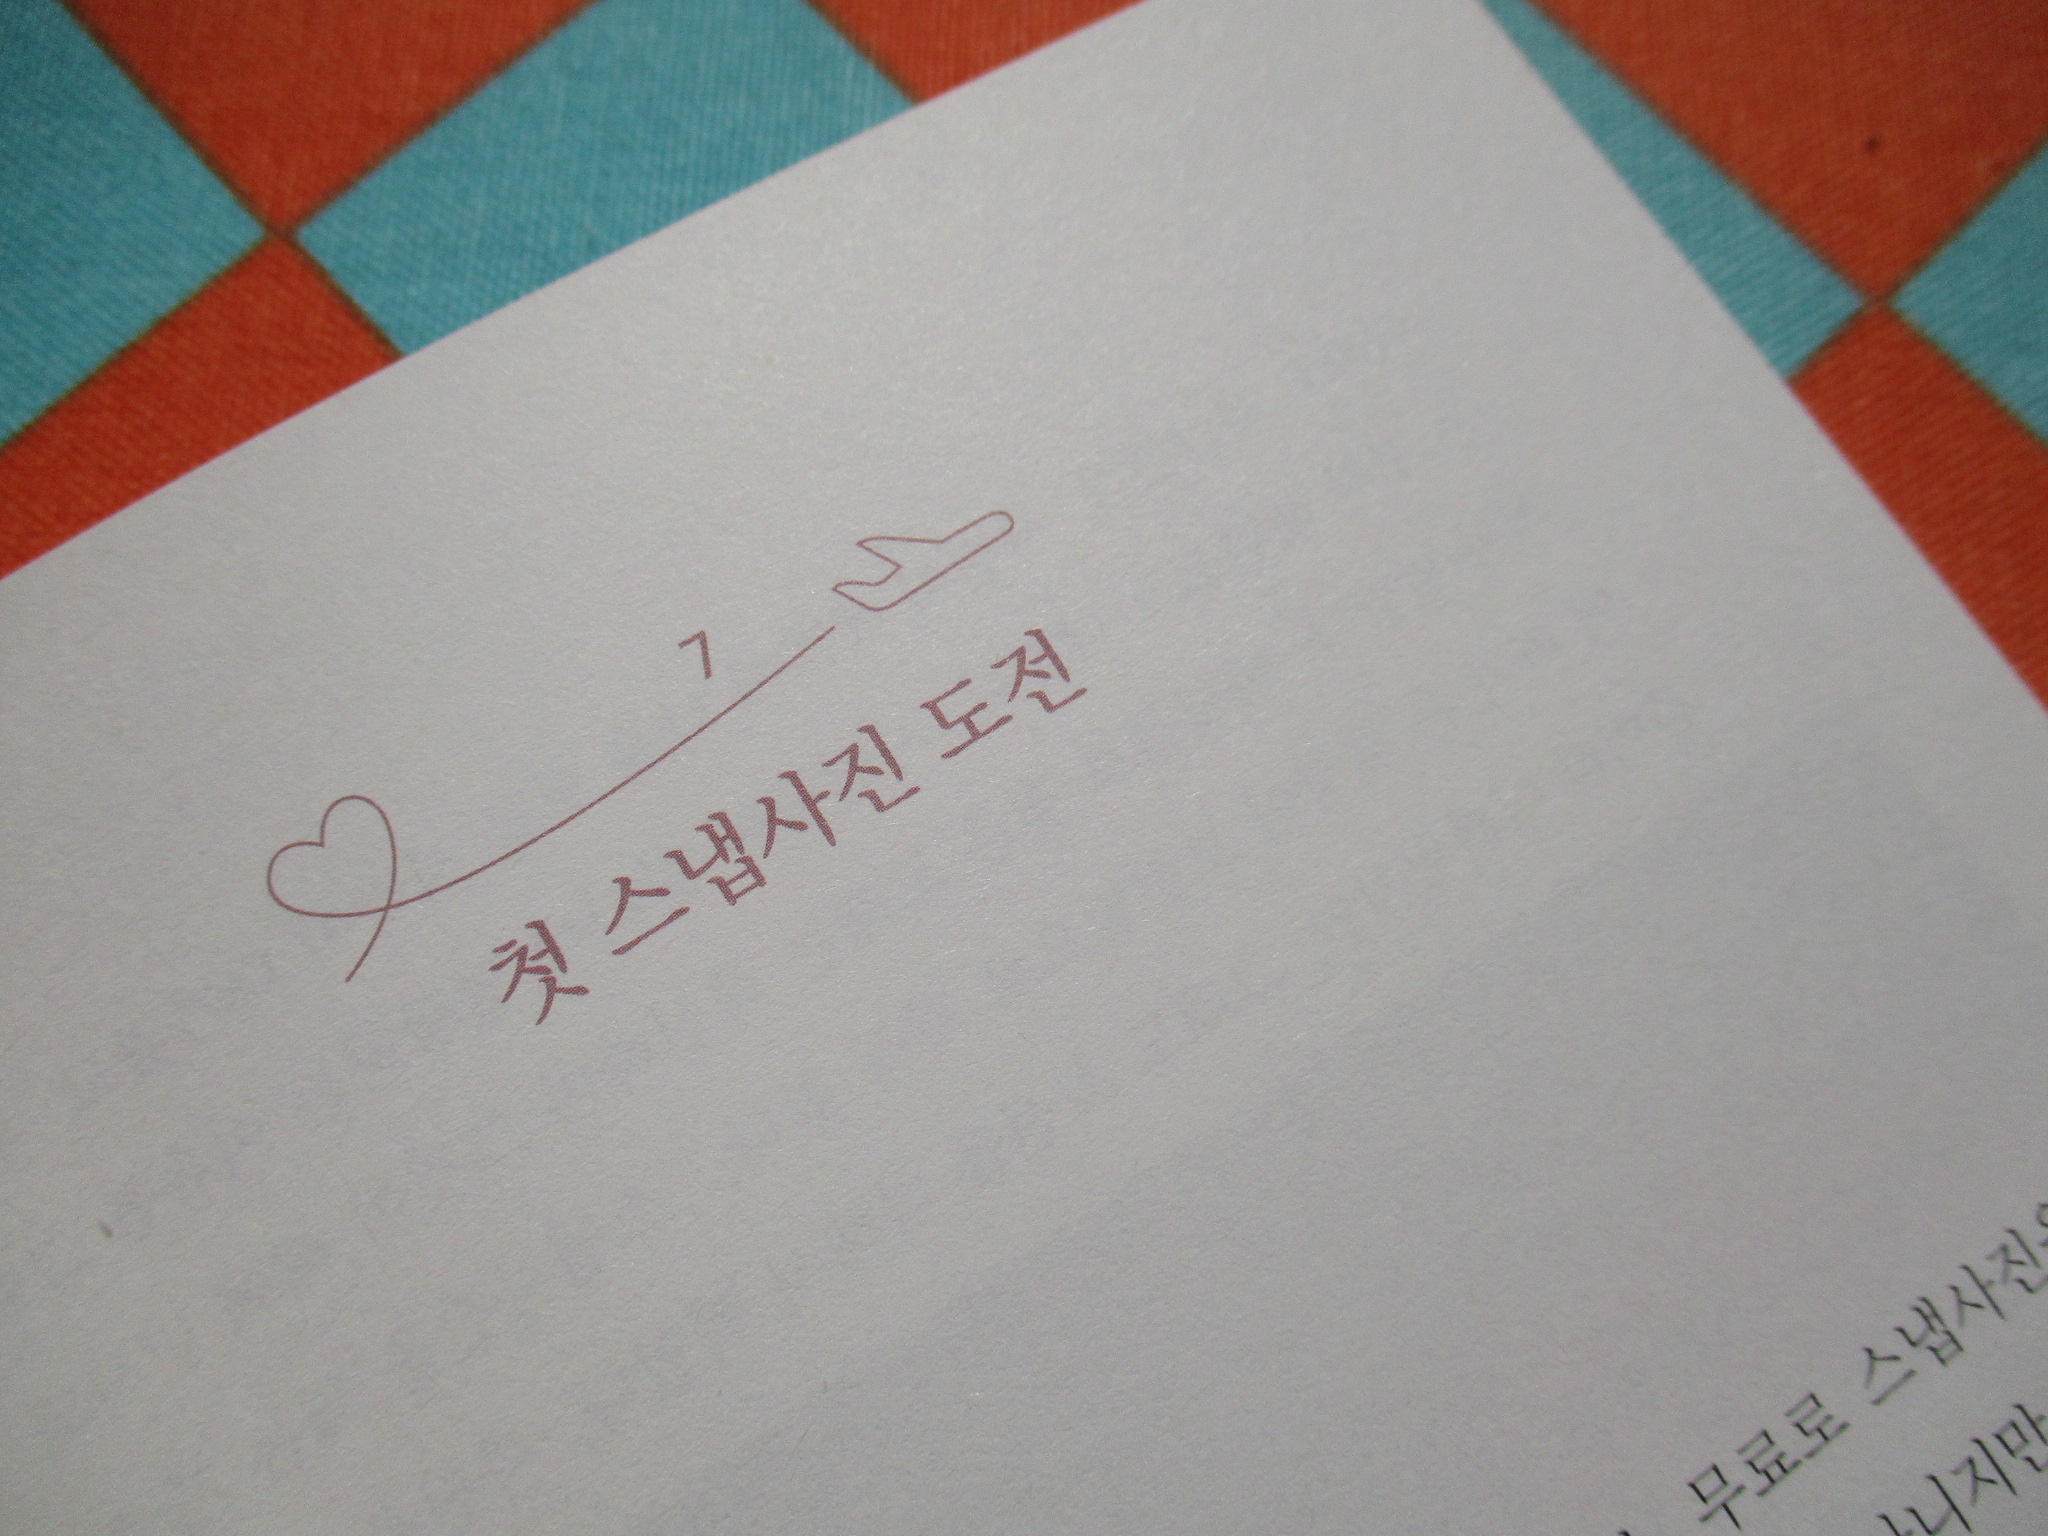 7
첫 스냅사진 도전
무료로 스냅사진